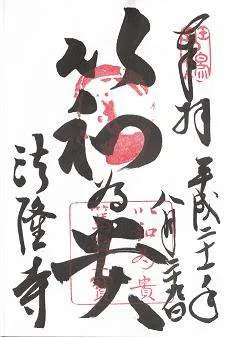 奉拝
平成二十一年
八月二十九日
以和為貴
法隆寺
以和為貴